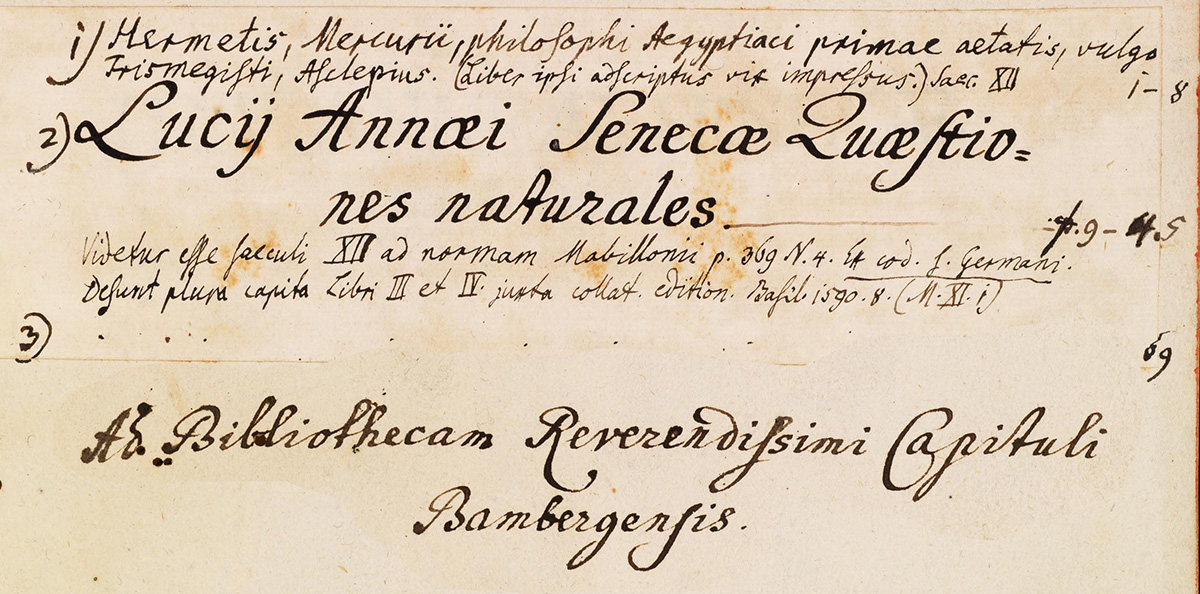 1) Hermetis, Mercurii, philosophi Aegyptiaci primae aetatis, vulgo
Trismegisti, Asclepius. (Liber ipsi adscriptus vix impressus.) Saec. XII
1 – 8
2) Lucij Annæi Senecæ Quæstio=
nes naturales
p. 9 – 45
Videtur esse saeculi XII ad normam Mabillonii p. 369 N. 4. Ex cod. S. Germani.
Desunt plura capita Libri III et IV. juxta collat. edition. Basil. 1590. 8. (M. XI. i)
3)
69
Ad Bibliothecam Reverendissimi Capituli
Bambergensis.